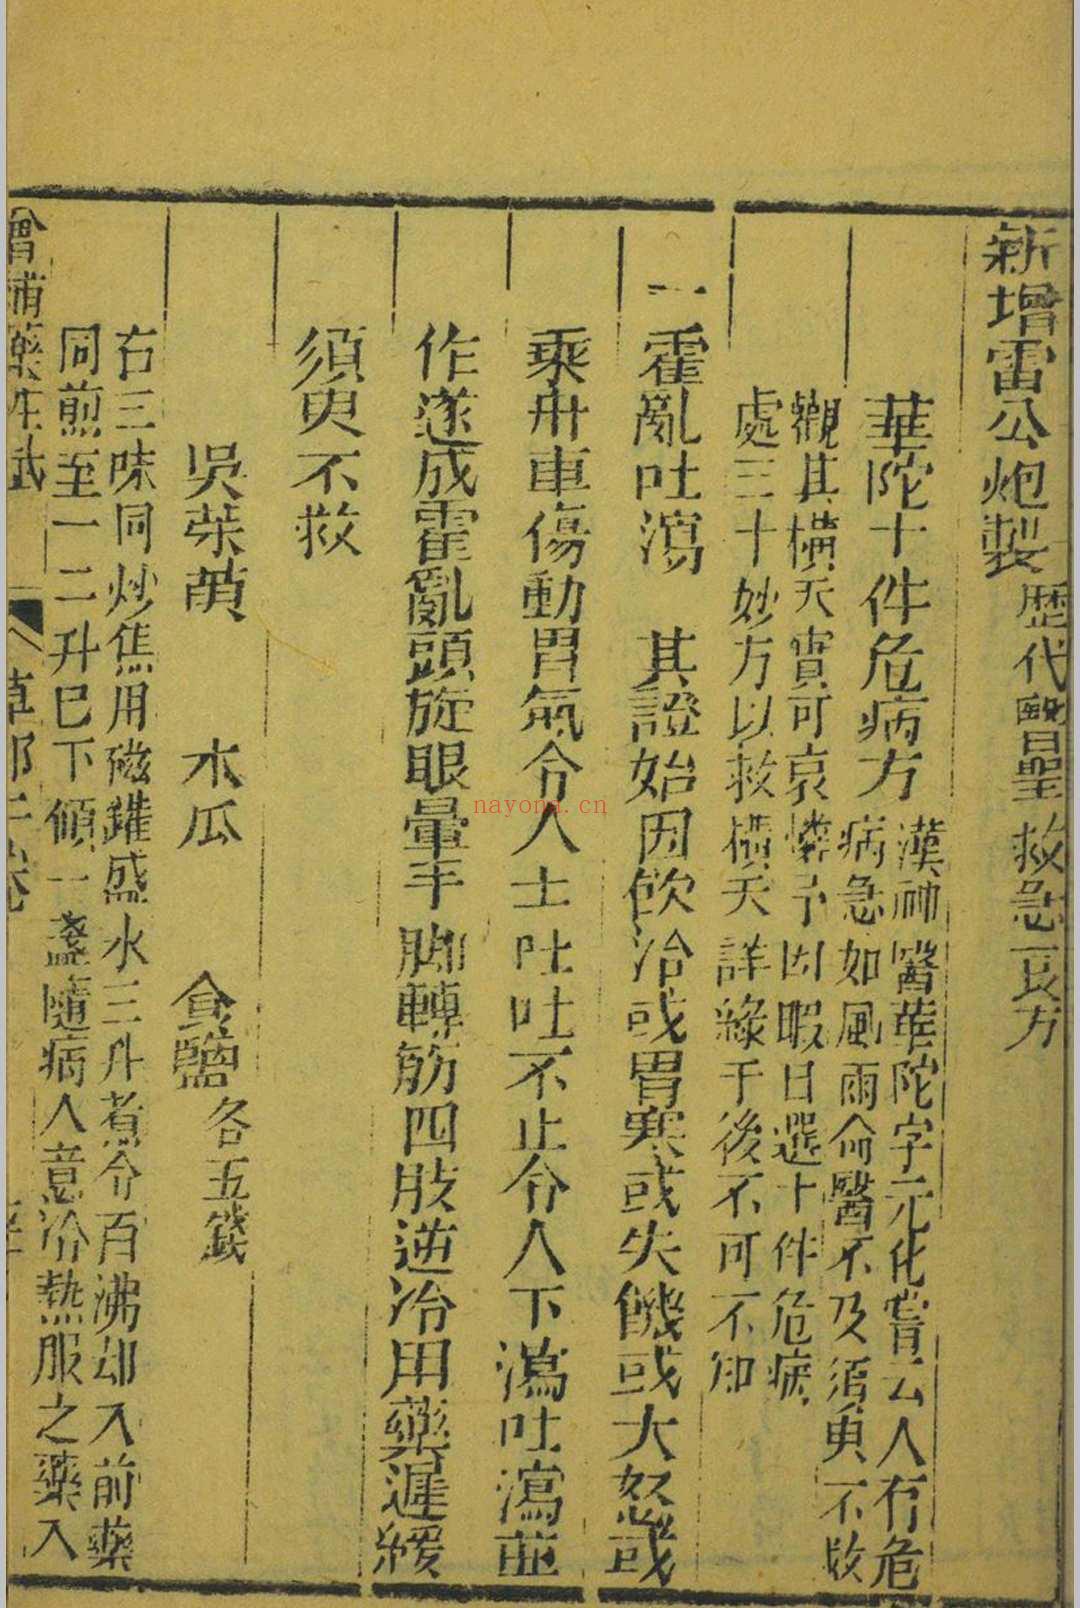 新增雷公炮製歷代醫聖救急良方
華陀十件危病方
漢神醫華陀字元化嘗云人有危
病急如風雨命醫不及須臾不救
觀其橫夭實可哀憐予因暇日選十件危病
處三十妙方以救橫夭詳錄于後不可不知
一霍亂吐瀉 其證始因飲冷或胃寒或失饑或大怒或
乘舟車傷動胃氣令人上吐吐不止令人下瀉吐瀉並
作遂成霍亂頭旋眼暈手脚轉筋四肢逆冷用藥遲緩
須臾不救
吳茱萸 木瓜 食鹽各五錢
右三味同炒焦用磁鑵盛水三升煮令百沸却入前藥
同煎至一二升已下傾一盞隨病人意冷熱服之藥入
增補藥性賦 草部 卷
nayona.cn